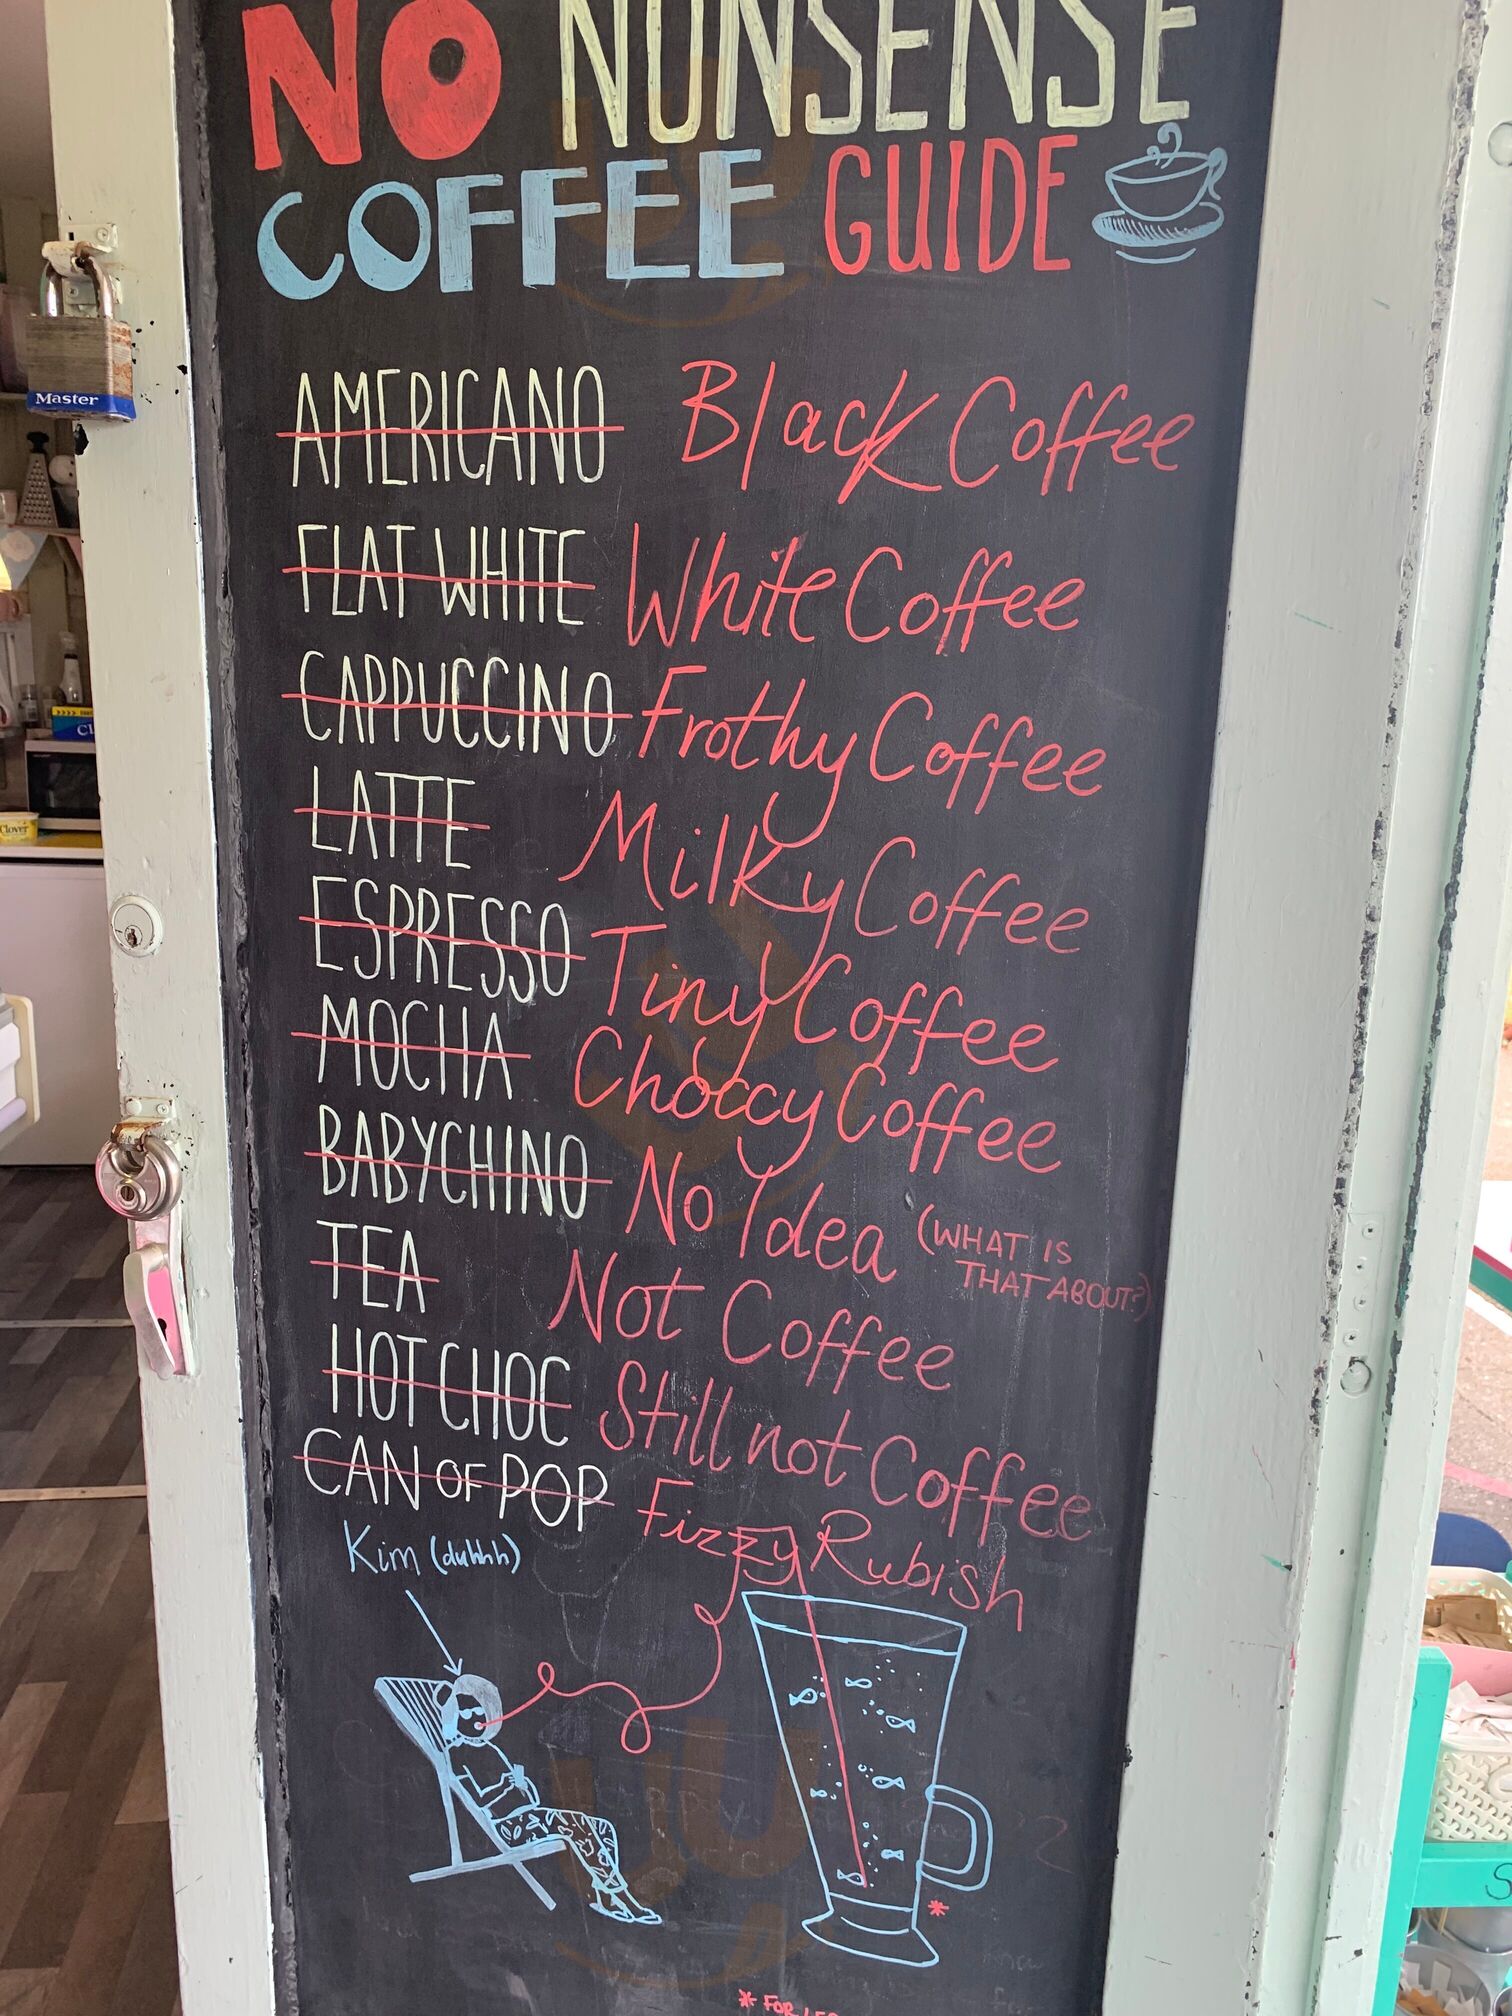 NO NONSENSE
COFFEE GUIDE
AMERICANO Black Coffee
FLAT WHITE White Coffee
CAPPUCCINO Frothy Coffee
LATTE Milky Coffee
ESPRESSO Tiny Coffee
MOCHA Choccy Coffee
BABYCHINO No Idea (WHAT IS
THAT ABOUT?)
TEA Not Coffee
HOT CHOC Still not Coffee
CAN OF POP Fizzy Rubish
Kim (duhhh)
*
* FOR
Master
Clover